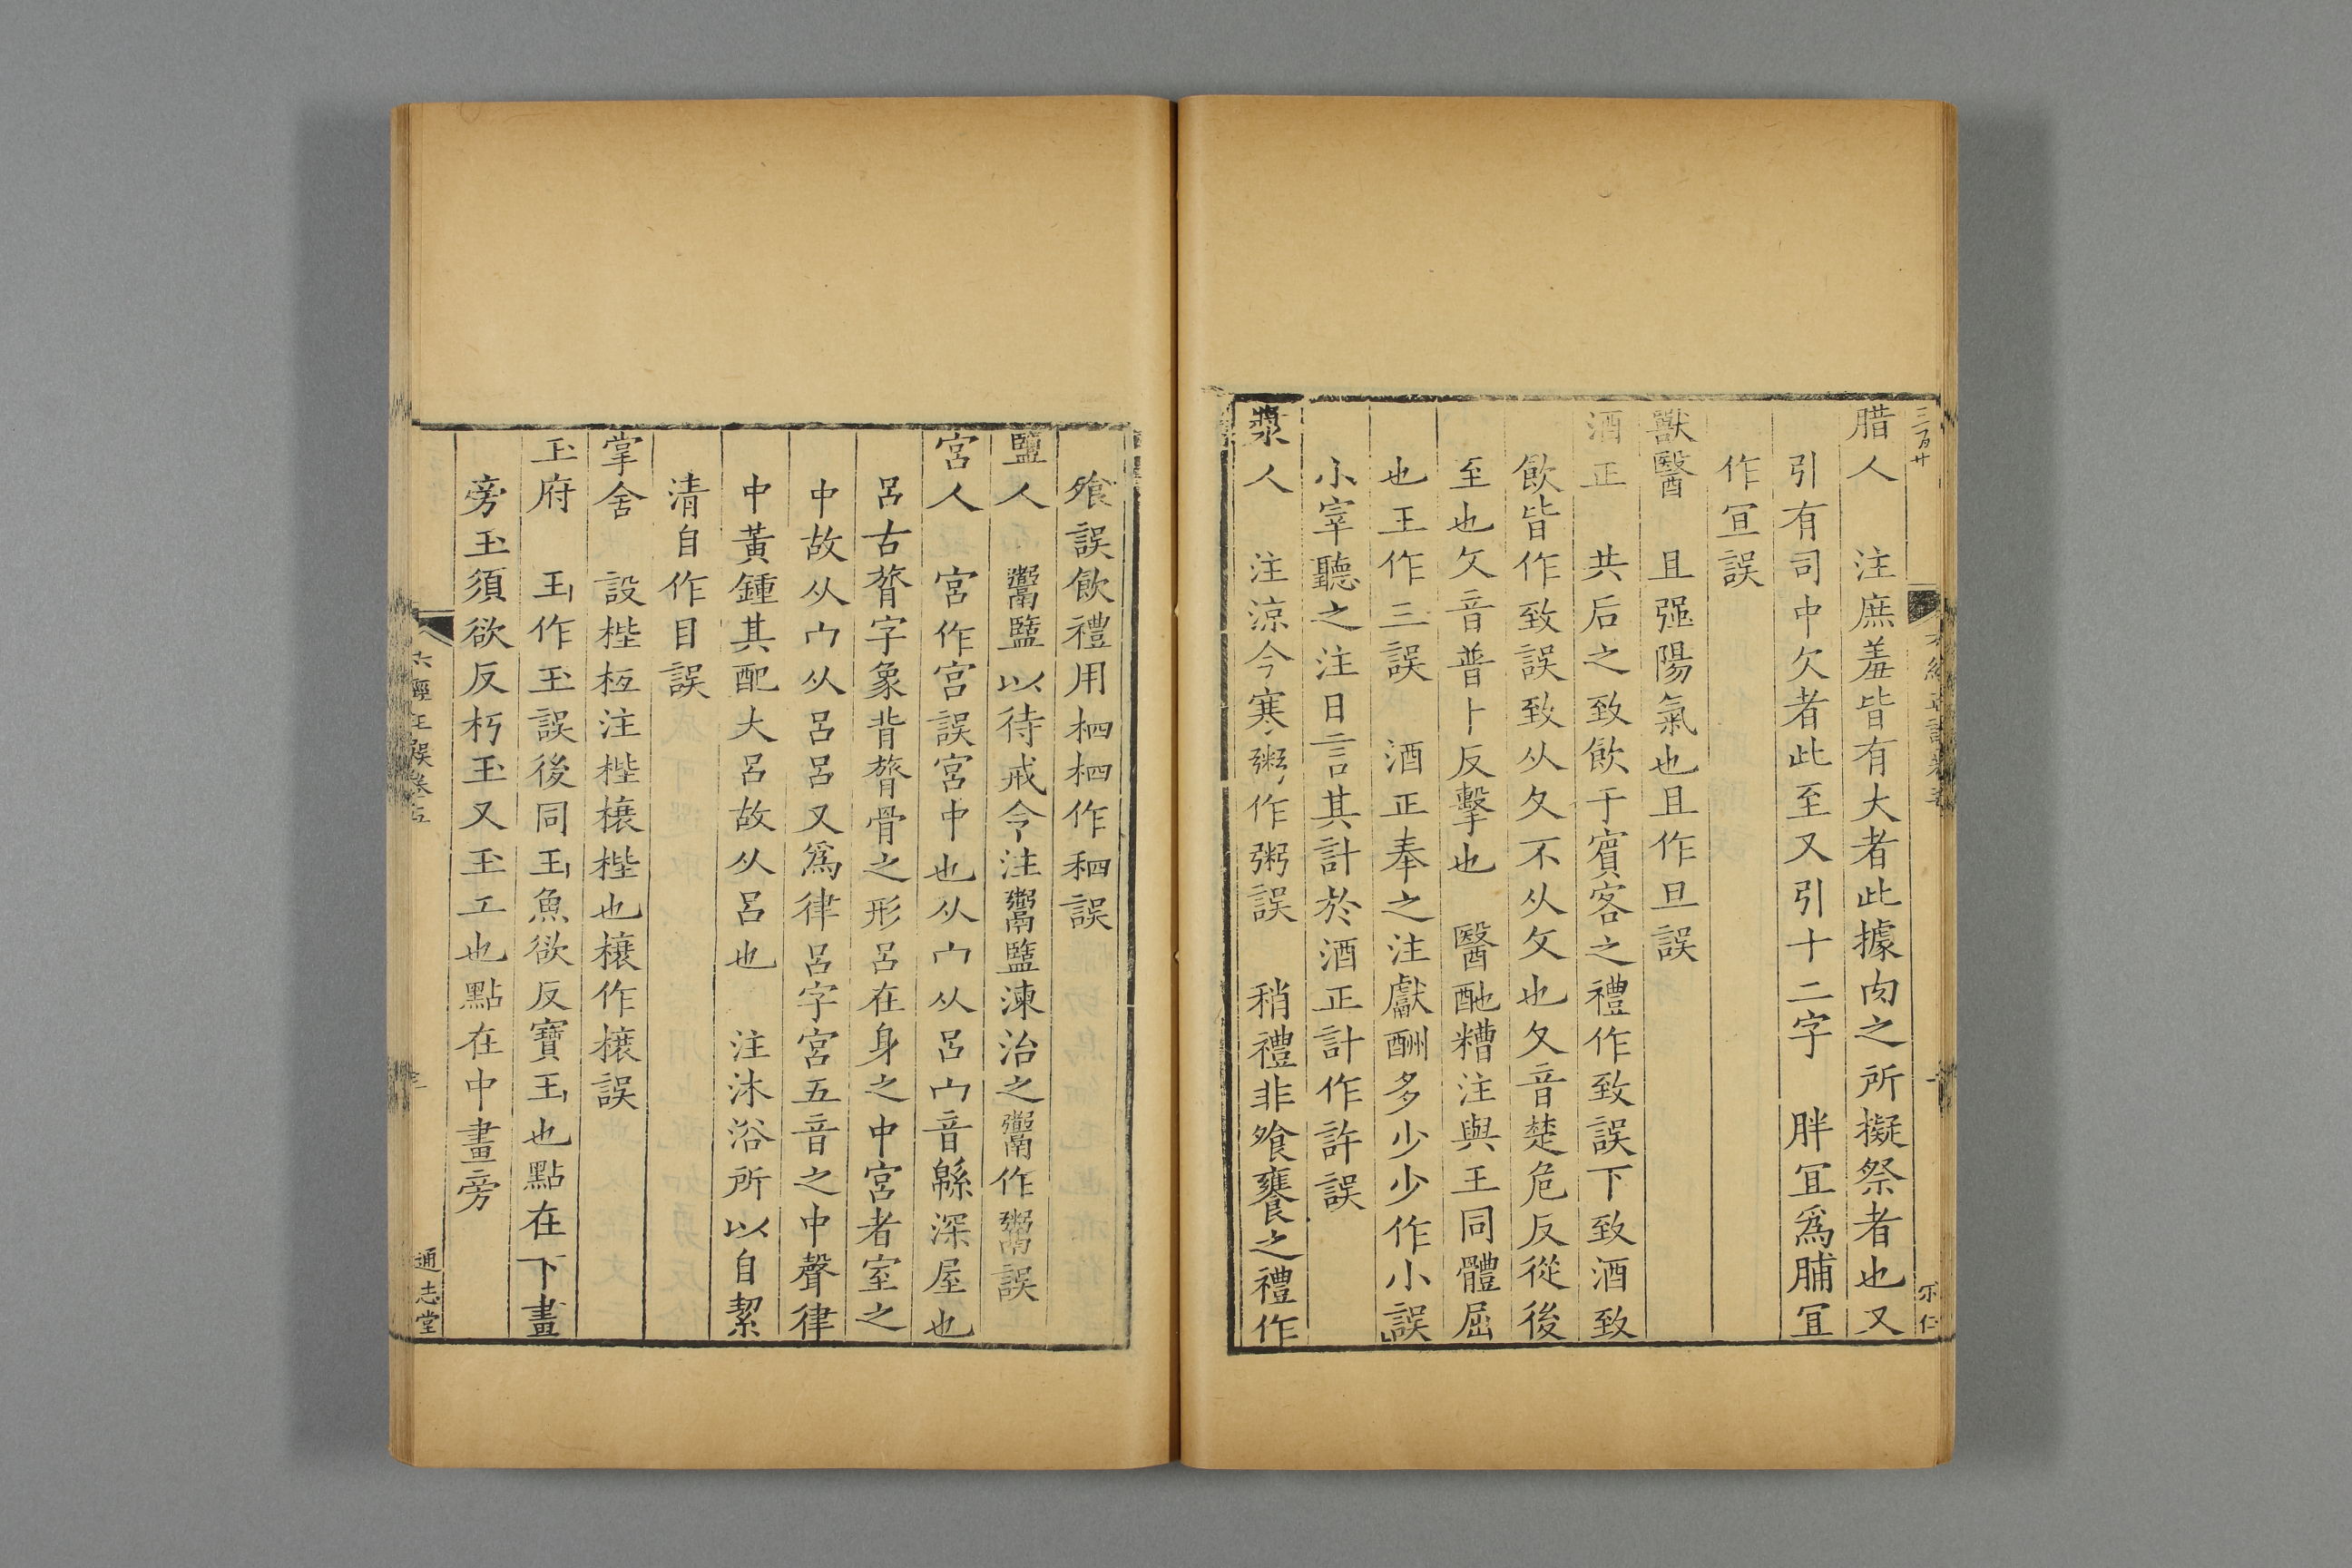 三百廿
腊人　注庶羞皆有大者此據肉之所擬祭者也又
引有司中欠者此至又引十二字　胖宜爲脯宜
作宜誤
獸醫　且强陽氣也且作旦誤
酒正　共后之致飲于賓客之禮作致誤下致酒致
飲皆作致誤致从夂不从攵也夂音楚危反從後
至也攵音普卜反擊也　醫酏糟注與王同體屈
也王作三誤　酒正奉之注獻酬多少少作小誤
小宰聽之注日言其計於酒正計作許誤
漿人　注涼今寒粥作粥誤　稍禮非飧饔之禮作
飧誤飲禮用柶柶作秵誤
鹽人　鬻盬以待戒令注鬻盬湅治之鬻作鬻誤
宮人　宮作宫誤宮中也从宀从呂宀音緜深屋也
呂古膂字象背膂骨之形呂在身之中宮者室之
中故从宀从呂呂又爲律呂字宮五音之中聲律
中黃鍾其配大呂故从呂也　注沐浴所以自絜
清自作目誤
掌舍　設梐枑注梐榱梐也榱作榱誤
玉府　玉作玉誤後同玉魚欲反寶玉也點在下畫
旁玉須欲反朽玉又玉工也點在中畫旁
六經正誤卷五
通志堂